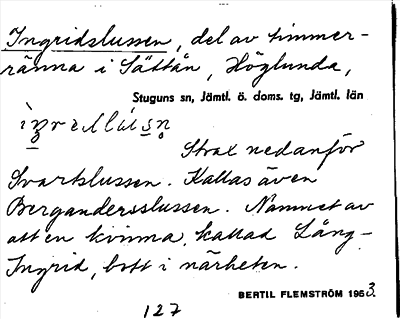 Ingridslussen, del av timmer-
ränna i Sättån, Höglunda,
Stuguns sn, Jämtl. ö. doms. tg, Jämtl. län
Strax nedanför
Svartslussen. Kallas även
Bergandersslussen. Namnet av
att en kvinna, kallad Lång-
Ingrid, bott i närheten.
BERTIL FLEMSTRÖM 1963.
127